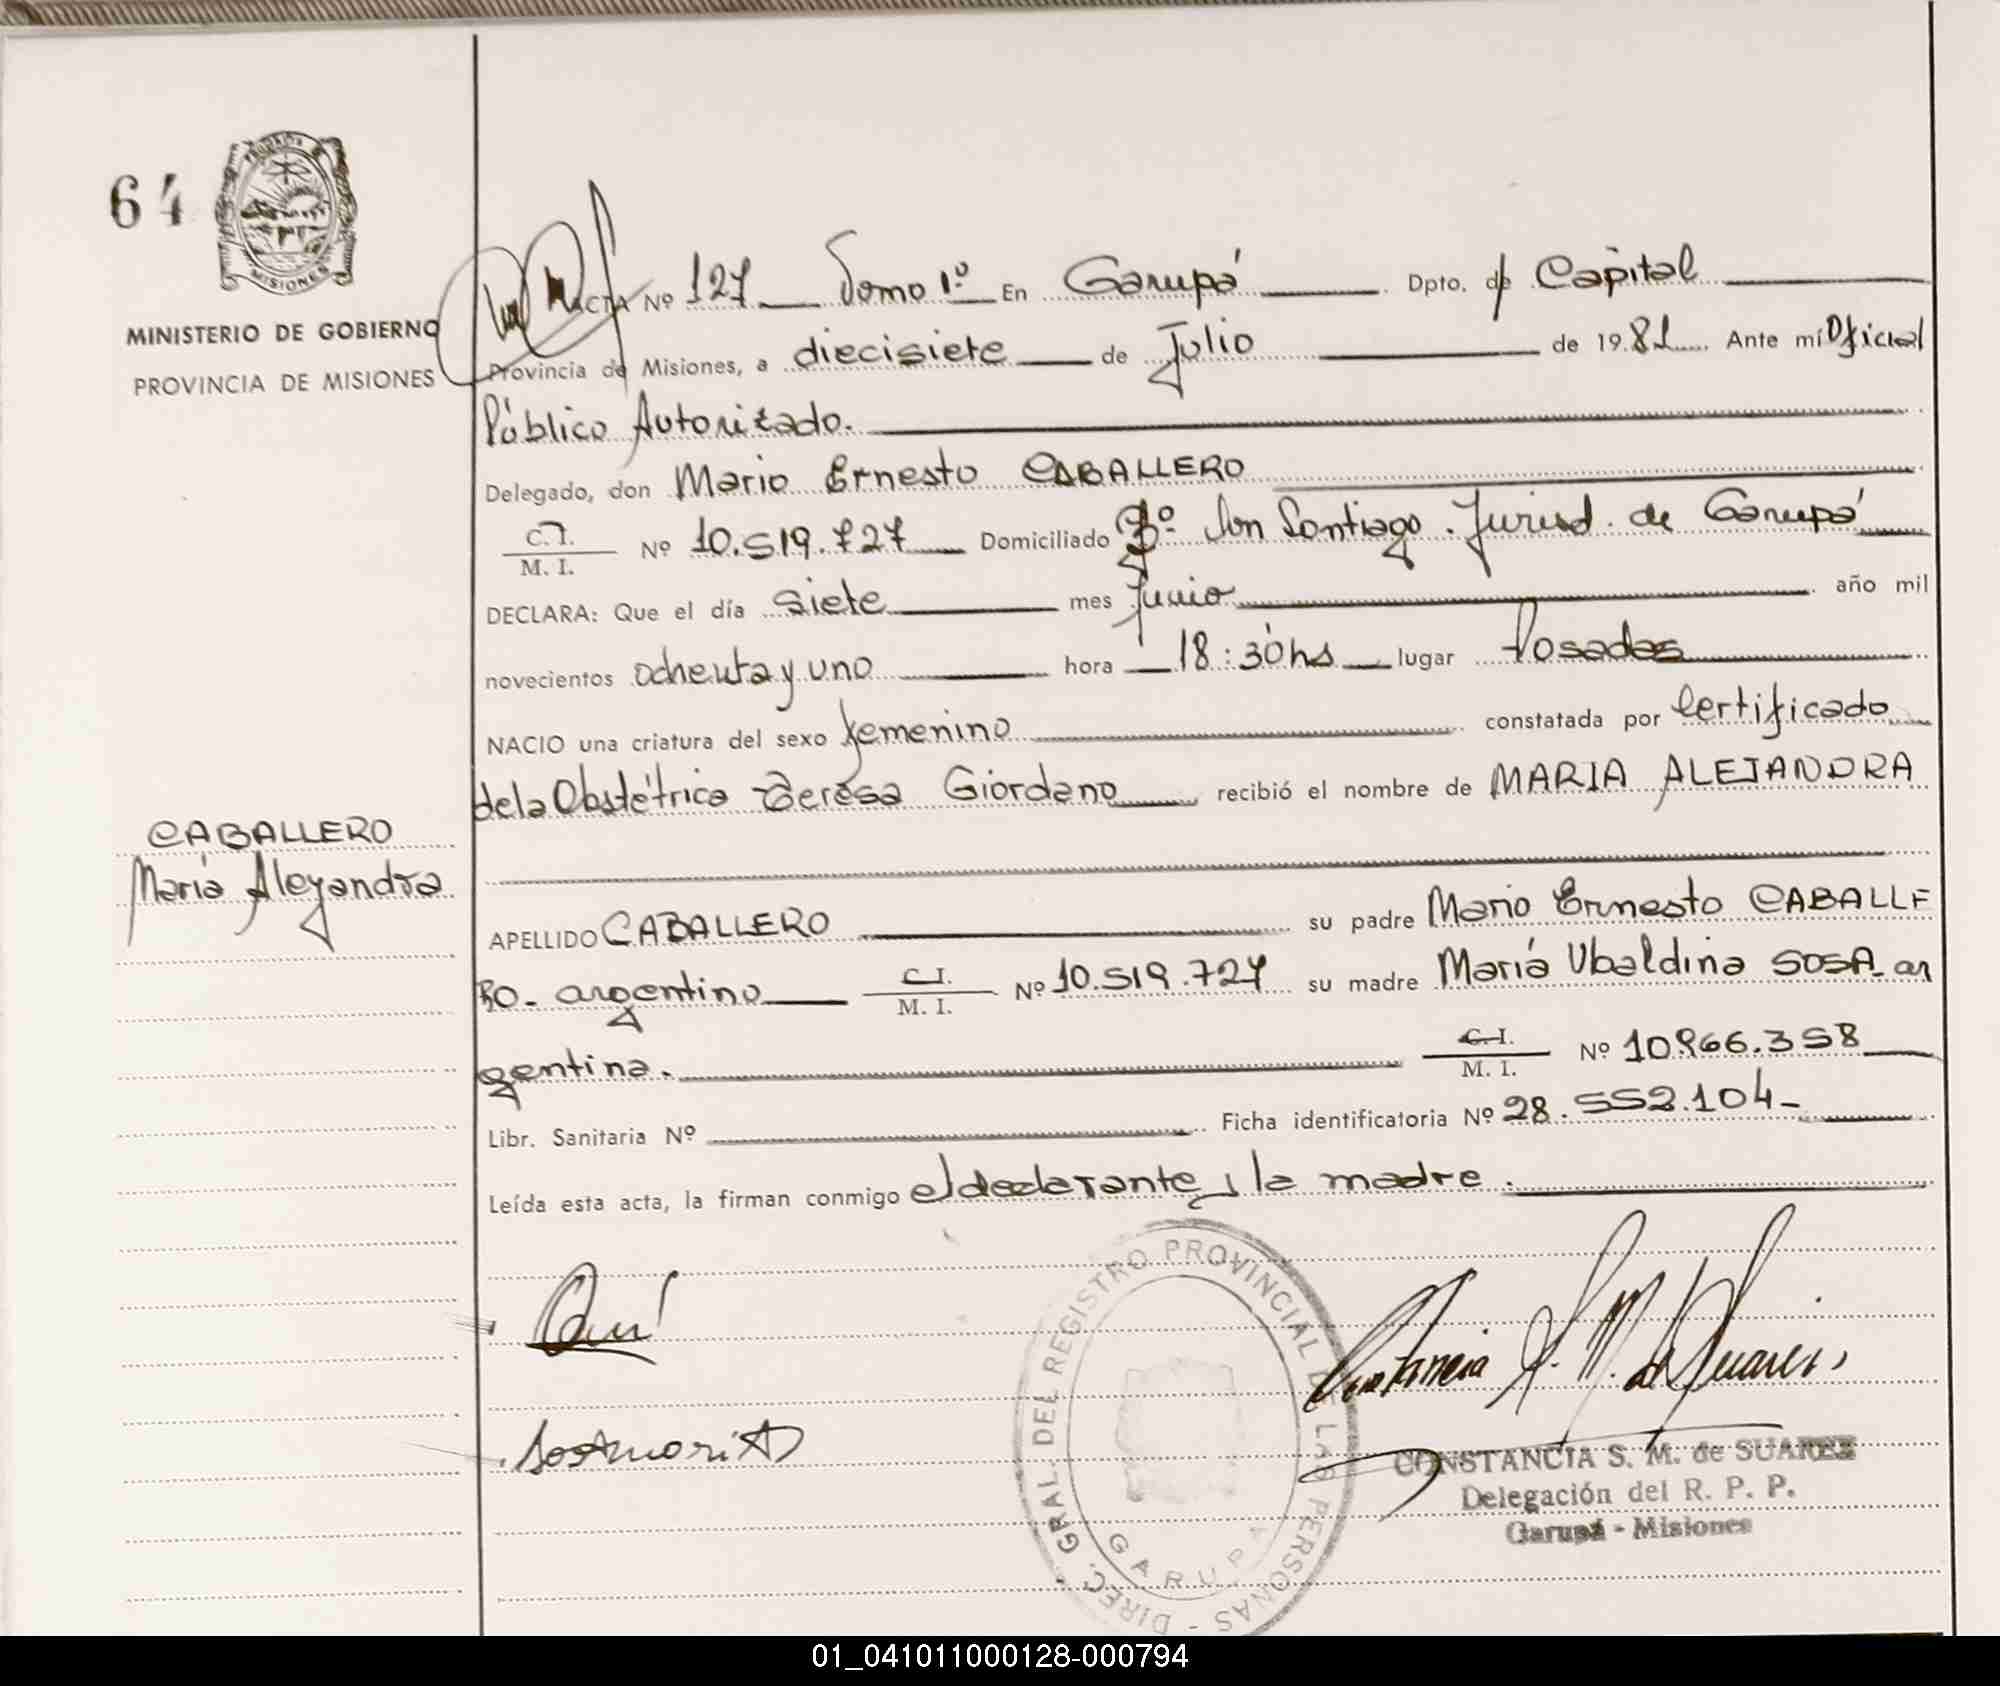 64
MISIONES
MINISTERIO DE GOBIERNO
PROVINCIA DE MISIONES
ACTA Nº 127 Tomo 1º En Garupá Dpto. de Capital
Provincia de Misiones, a diecisiete de Julio de 1981 Ante mí Oficial
Público Autorizado.
Delegado, don Mario Ernesto CABALLERO
C.I.
M. I. Nº 10.519.727 Domiciliado Bº Son Santiago. Jurisd. de Garupá
DECLARA: Que el día siete mes Junio año mil
novecientos ochenta y uno hora 18:30 hs lugar Posadas
NACIO una criatura del sexo femenino constatada por Certificado
de la Obstétrica Teresa Giordano recibió el nombre de MARIA ALEJANDRA
CABALLERO
María Alejandra
APELLIDO CABALLERO su padre Mario Ernesto CABALLE
RO- argentino C.I.
M. I. Nº 10.519.727 su madre María Ubaldina SOSA- ar
gentina. C.I.
M. I. Nº 10.966.358
Libr. Sanitaria Nº Ficha identificatoria Nº 28.552.104-
Leída esta acta, la firman conmigo el declarante y la madre.
Constancia S. M. de Suarez
CONSTANCIA S. M. de SUAREZ
Delegación del R. P. P.
Garupá - Misiones
DIREC. GRAL. DEL REGISTRO PROVINCIAL DE LAS PERSONAS -
GARUPA
01_041011000128-000794